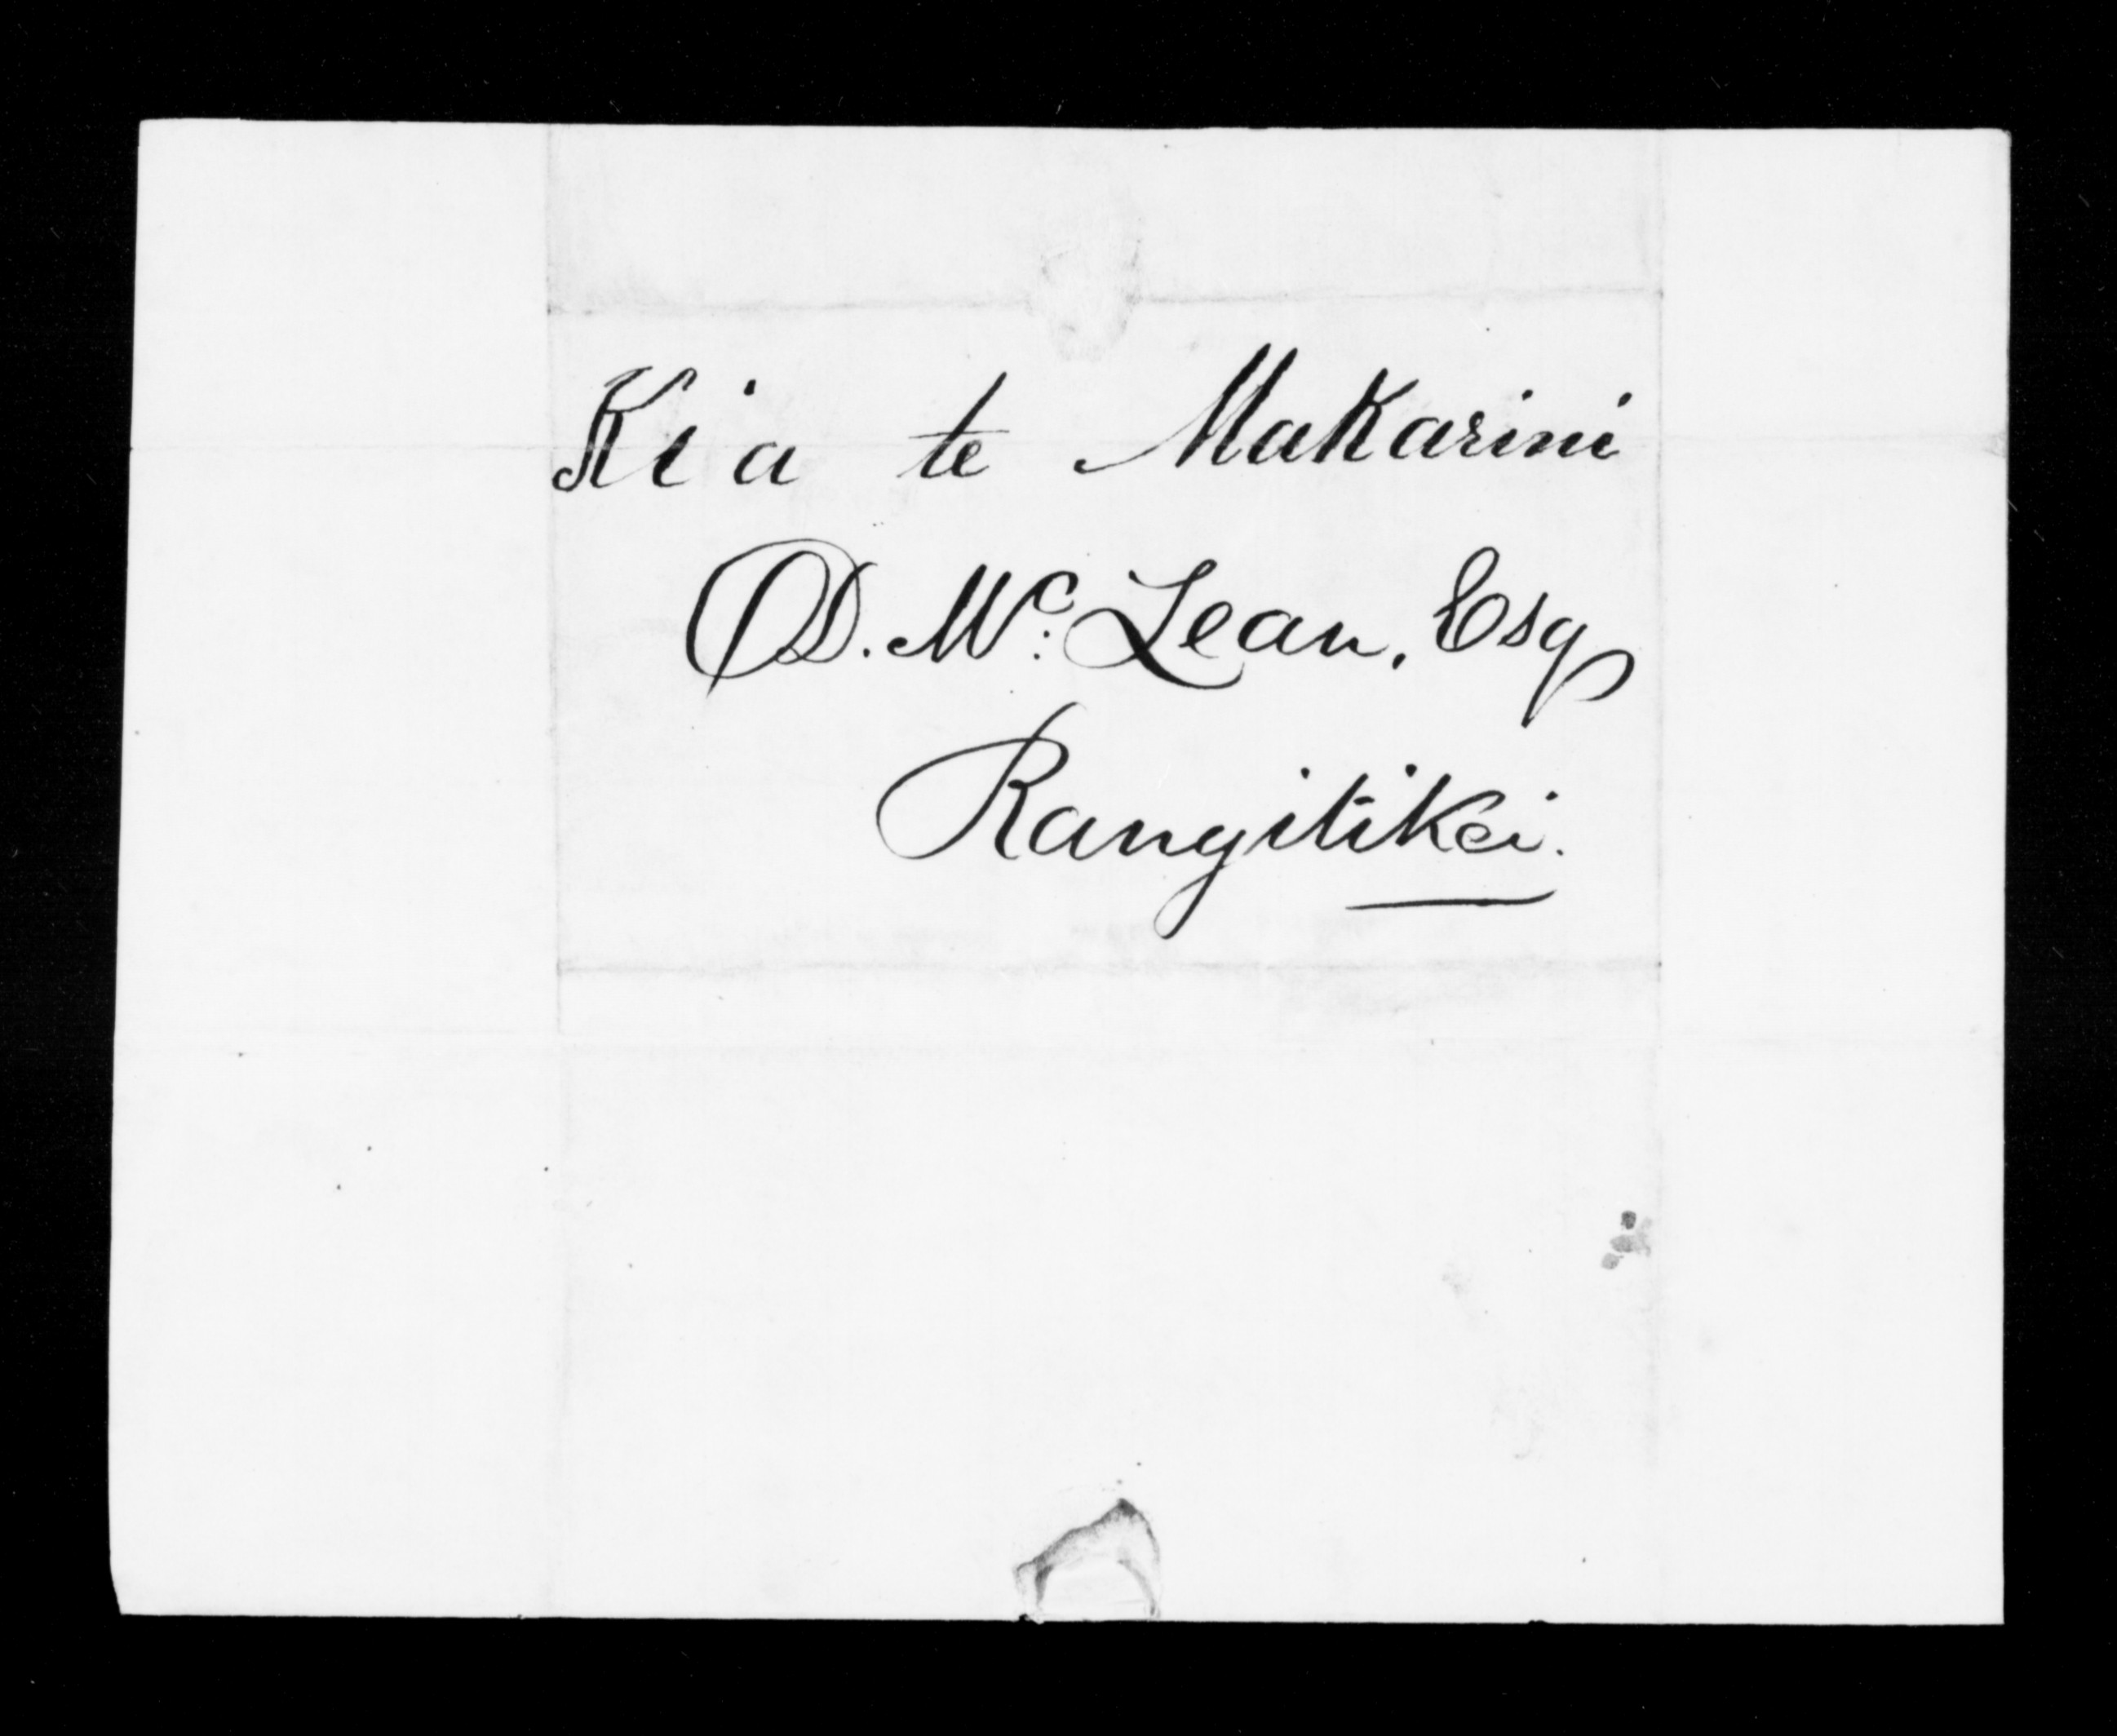 Kia te Makarini
D. Mc. Lean, Esq
Rangitikei.